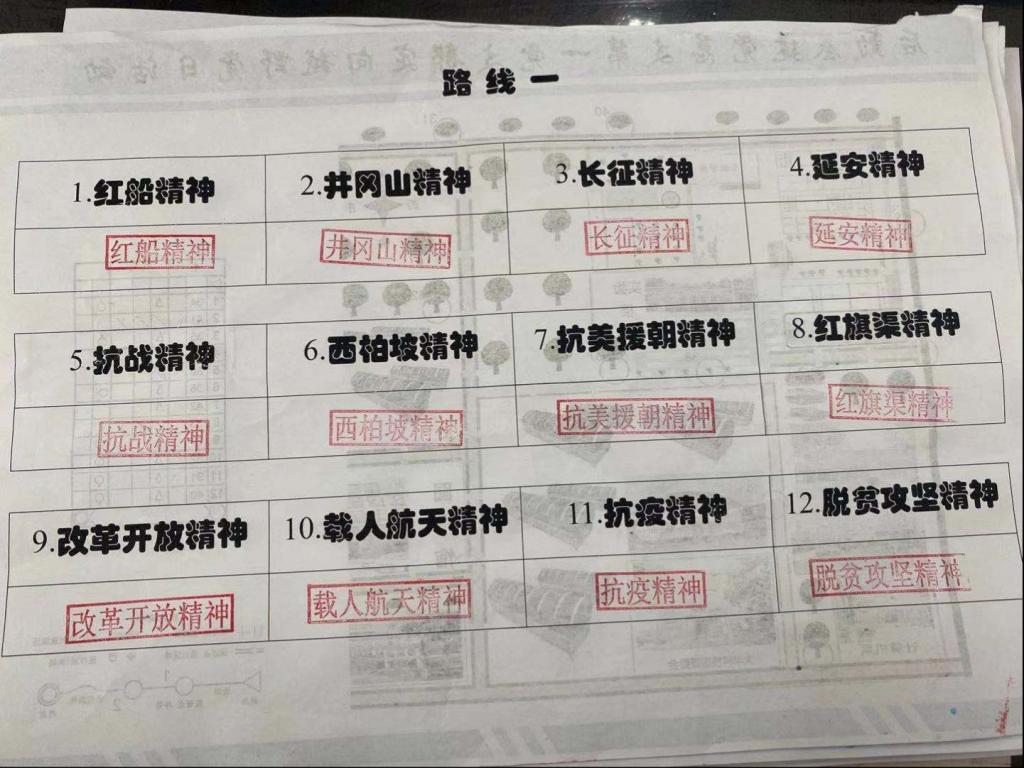 路线一
1.红船精神 2.井冈山精神 3.长征精神 4.延安精神
红船精神 井冈山精神 长征精神 延安精神
5.抗战精神 6.西柏坡精神 7.抗美援朝精神 8.红旗渠精神
抗战精神 西柏坡精神 抗美援朝精神 红旗渠精神
9.改革开放精神 10.载人航天精神 11.抗疫精神 12.脱贫攻坚精神
改革开放精神 载人航天精神 抗疫精神 脱贫攻坚精神